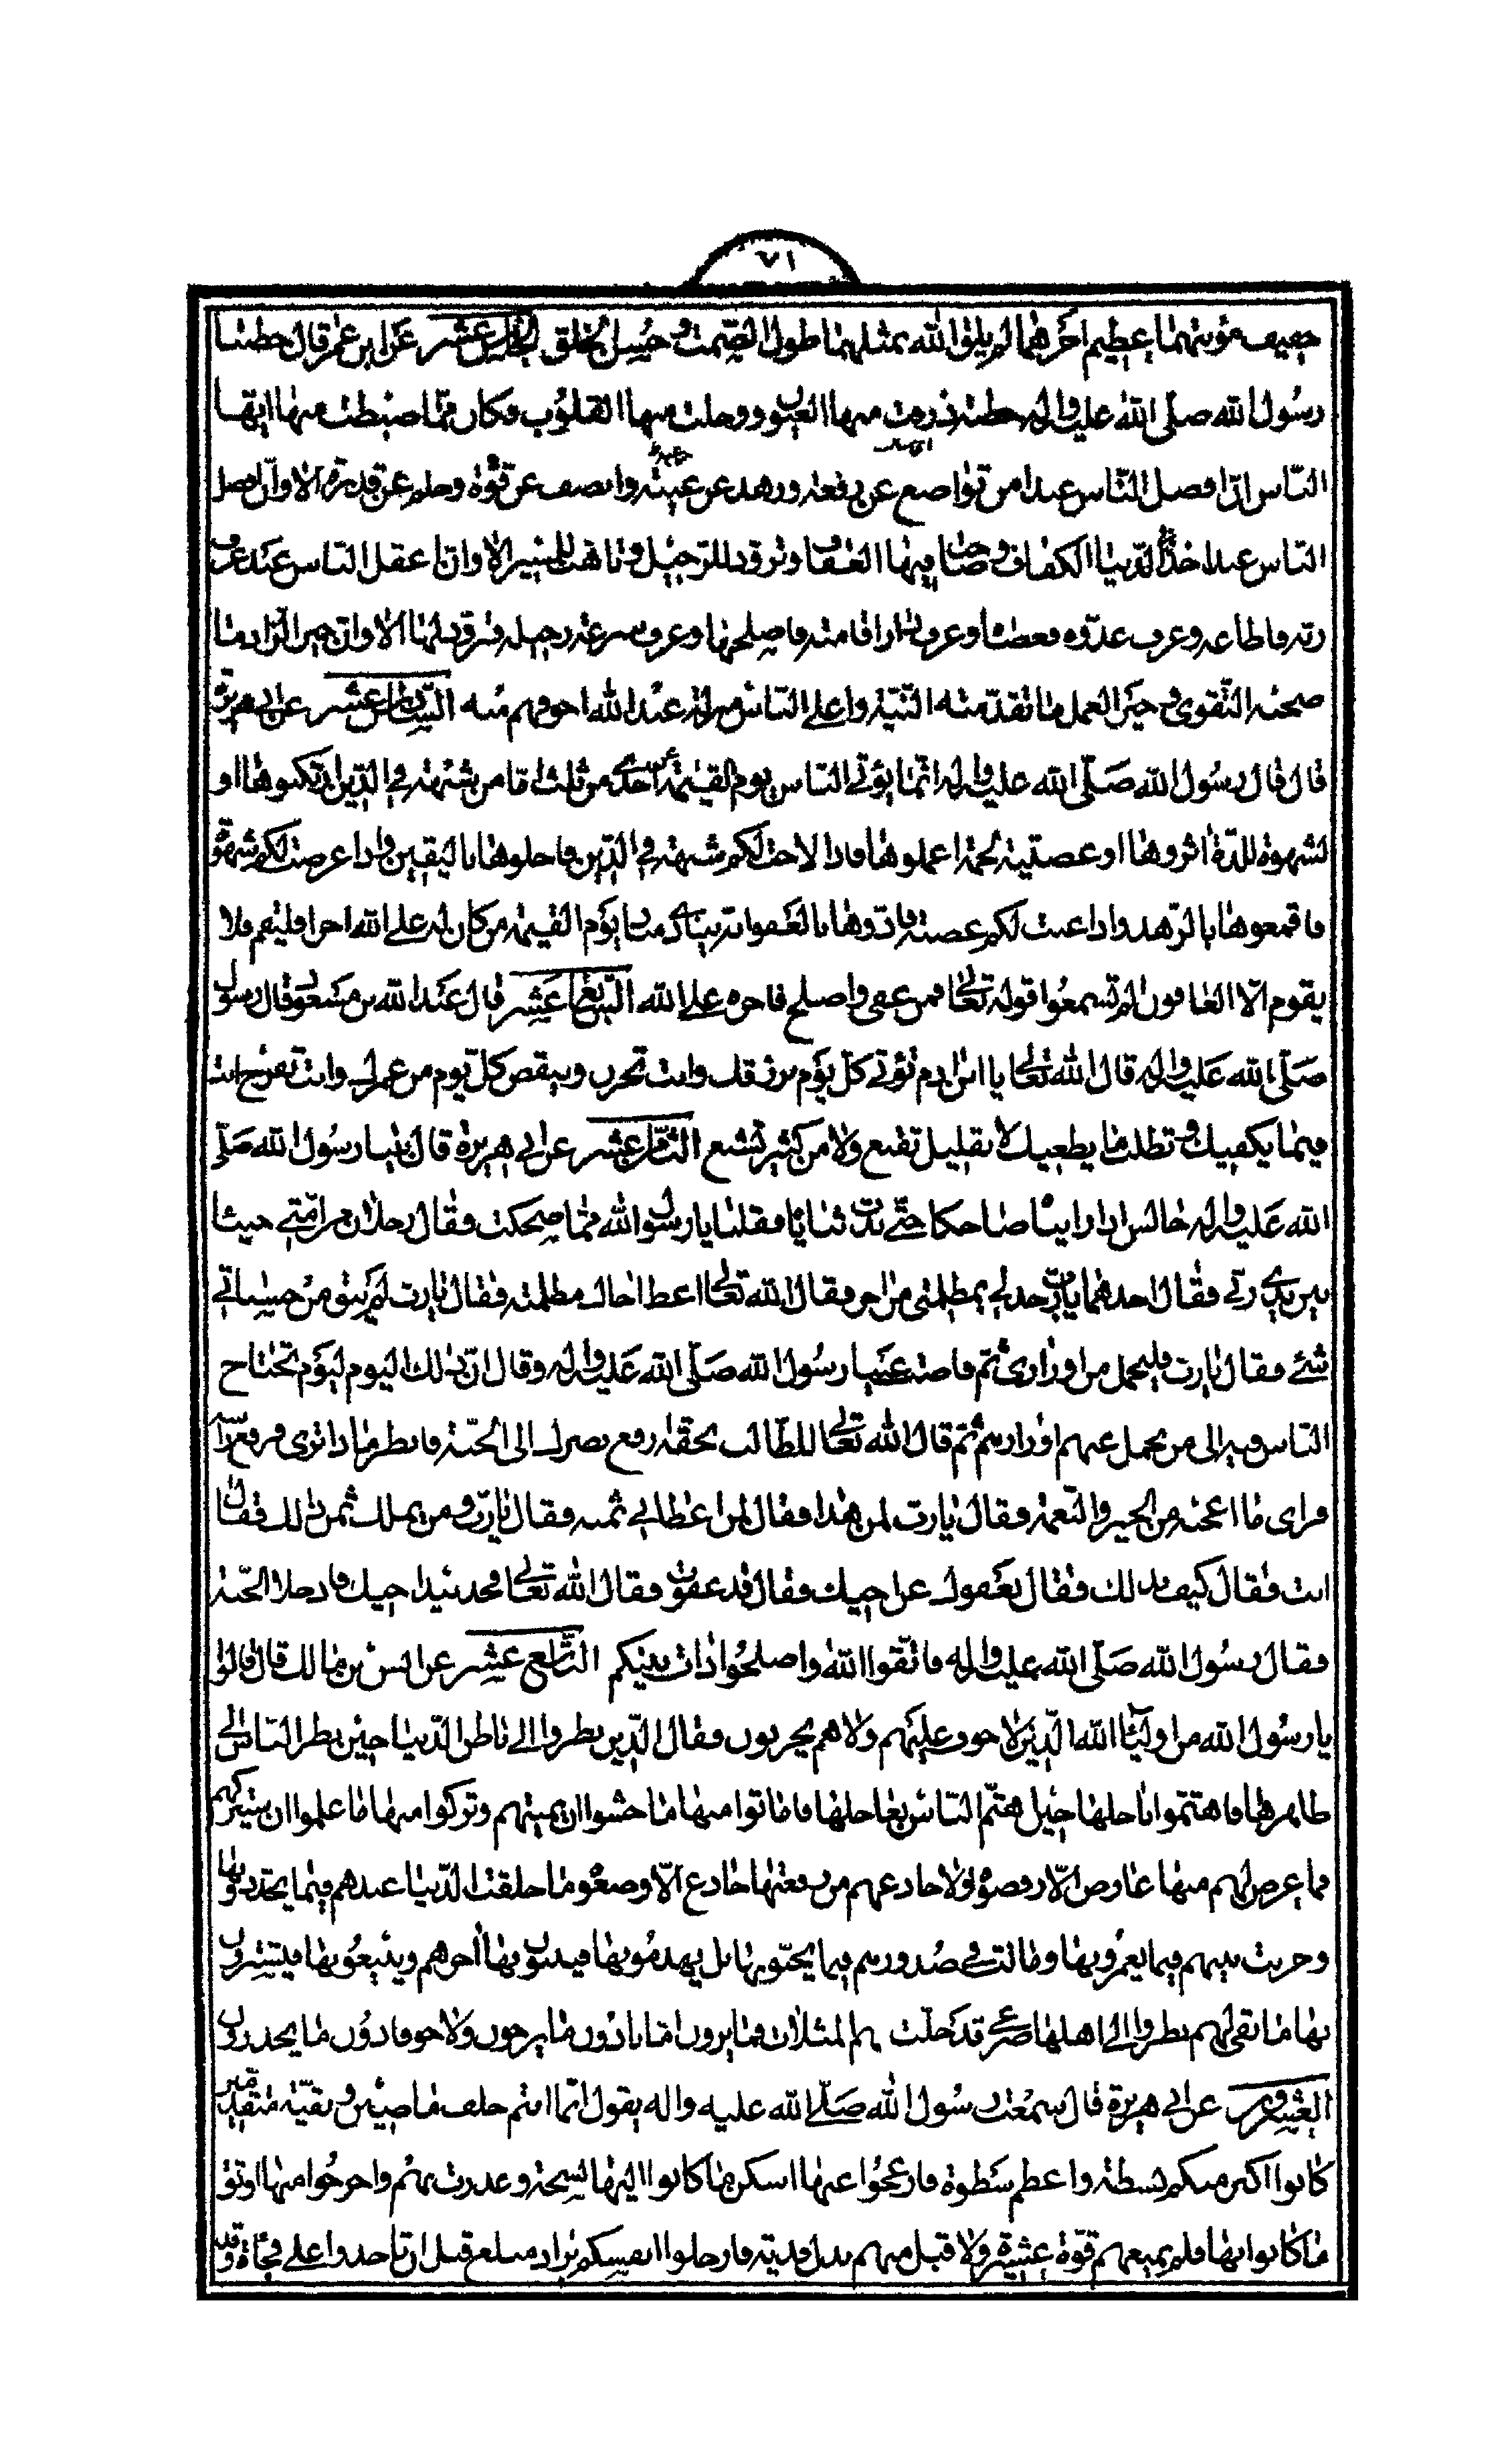 ٧١
خفيف مؤنتهما عظيم اجرهما لم يلق الله بمثلهما طول الصمت و حسن الخلق الخامس عشر عن ابن عمر قال خطبنا
رسول الله صلّى الله عليه واله خطبة ذرفت منها العيون ووجلت منها القلوب فكان ممّا ضبطت منها ايها
النّاس انّ افضل النّاس عبدا من تواضع عن رفعة وزهد عن غنية وانصف عن قوّة وحلم عن قدرة الا وانّ افضل
النّاس عبدا اخذ من الدّنيا الكفاف وصاحب فيها العفاف وتزود للرّحيل وتاهّب للمسير الا وانّ اعقل النّاس عبد عرف
ربّه فاطاعه وعرف عدوّه فعصاه وعرف دار اقامته فاصلحها وعرف سرعة رحيله فتزوّد لها الا وانّ خير الزّاد ما
صحبه التّقوى وخير العمل ما تقدّمته النّيّة واعلى النّاس منزلة عند الله اخوفهم منه السّادس عشر عن ابى هريرة
قال قال رسول الله صَلّى الله عليه واله انّما يؤتى النّاس يوم القيمة عن احدى من ثلث امّا من شبهة فى الدّين ارتكبوها او
لشهوة للذّة اثروها او عصبيّة لحمة اعملوها فاذا لاحت لكم شبهة فى الدّين فاجلوها باليقين واذا عرضت لكم شهوة
فاقمعوها بالزّهد واذا عنت لكم غصبة فادرؤها بالعفو انّه ينادى مناد يوم القيمة من كان له على الله اجرا فليقم فلا
يقوم الّا العافون الم تسمعوا قوله تعالى فمن عفى واصلح فاجره على الله السّابع عَشر قال عَبد الله بن مسعود قال رسول
صَلّى الله عَليه واله قال الله تعالى يا ابن ادم تؤتى كلّ يوم برزقك وانت تحزن وينقص كلّ يوم من عمرك وانت تفرح انت
فيما يكفيك وتطلب ما يطغيك لا بقليل تقنع ولا من كثير تشبع الثّامن عشر عن ابى هريرة قال بينا رسول الله صَلّى
الله عَليه واله جالس اذ راينا ضاحكا حتّى بدت ثناياه فقلنا يا رسول الله ممّا ضحكت فقال رجلان من امّتى جيئا
بين يدى ربّى فقال احدهما يا ربّ خذ لى بمظلمتى من اخى فقال الله تعالى اعط اخاك مظلمته فقال يا ربّ لم يبق من حسناتى
شئ فقال يا ربّ فليحمل من اوزارى ثمّ فاضت عينا رسول الله صَلّى الله عَليه واله وقال انّ ذلك اليوم ليوم تحتاج
النّاس فيه الى من يحمل عنهم اوزارهم ثمّ قال الله تعالى للطّالب بحقّه ارفع بصرك الى الجنّة فانظر ماذا ترى فرفع راسه
فراى ما اعجبه من الخير والنّعمة فقال يا ربّ لمن هذا فقال لمن اعطانى ثمنه فقال يا ربّ ومن يملك ثمن ذلك فقال
انت فقال كيف بذلك فقال بعفوك عن اخيك فقال قد عفوت فقال الله تعالى فخذ بيد اخيك فادخلا الجنّة
فقال رسول الله صَلّى الله عليه واله فاتّقوا الله واصلحوا ذات بينكم التّاسع عشر عن انس بن مالك قال قالوا
يا رسول الله من اولياء الله الّذين لا خوف عليهم ولا هم يحزنون فقال الّذين نظروا الى باطن الدّنيا حين نظر النّاس الى
ظاهرها فاهتمّوا باجلها حين اهتمّ النّاس بعاجلها فاماتوا منها ما خشوا ان يميتهم وتركوا منها ما علموا ان سيتركهم
فما عرض لهم منها عارض الّا رفضوه ولا خادعهم من رفعتها خادع الّا وضعوه خلقت الدّنيا عندهم فيما يجدّدونها
وخربت بينهم فيما يعمرونها وماتت فى صدورهم فيما يحيّونها بل يهدمونها فيبنون بها اخرتهم ويبيعونها فيشترون
بها ما يبقى لهم نظروا الى اهلها صرعى قد حلّت بهم المثلات فما يرون امانا دون ما يرجون ولا خوفا دون ما يحذرون
العشرون عن ابى هريرة قال سمعت رسول الله صَلّى الله عليه واله يقول انّما انتم خلف ماضين وبقيّة متقدّمين
كانوا اكبر منكم بسطة واعظم سَطوة فازعجوا عنها اسكن ما كانوا اليها وغدرت بهم واخرجوا منها اوثق
ما كانوا بها فلم يمنعهم قوّة عشيرة ولا قبل منهم بذل فدية فارحلوا انفسكم بزاد مبلغ قبل ان تاخذوا على فجأة وقد